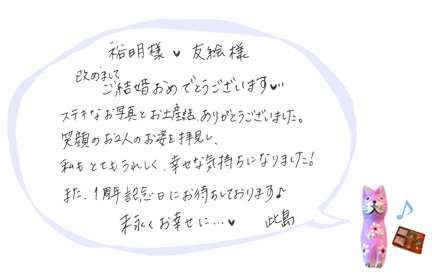 裕明様♥友絵様
改めまして
ご結婚おめでとうございます♥・・
ステキなお写真とお土産話、ありがとうございました。
笑顔のお2人のお姿を拝見し、
私もとてもうれしく、幸せな気持ちになりました!
また、1周年記念日にお待ちしております♪
末永くお幸せに…♥ 此島